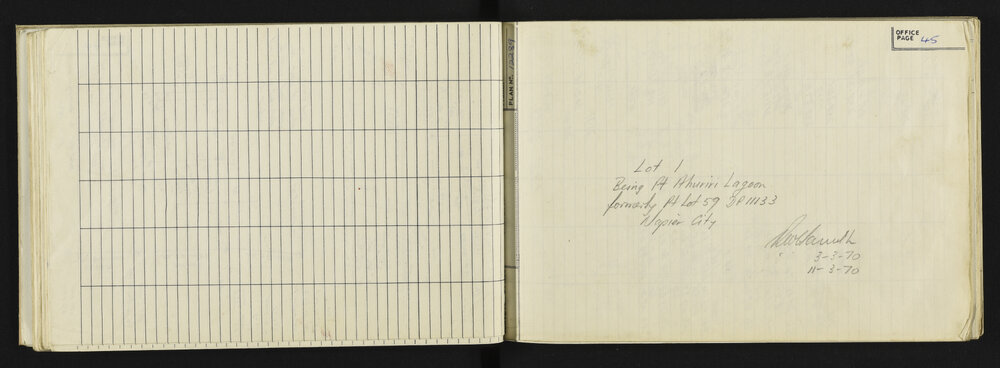 PLAN No.
OFFICE
PAGE 45
Lot 1
Being Pt Ahuriri Lagoon
formerly Pt Lot 59 DP 11133
Napier City
3-3-70
11-3-70